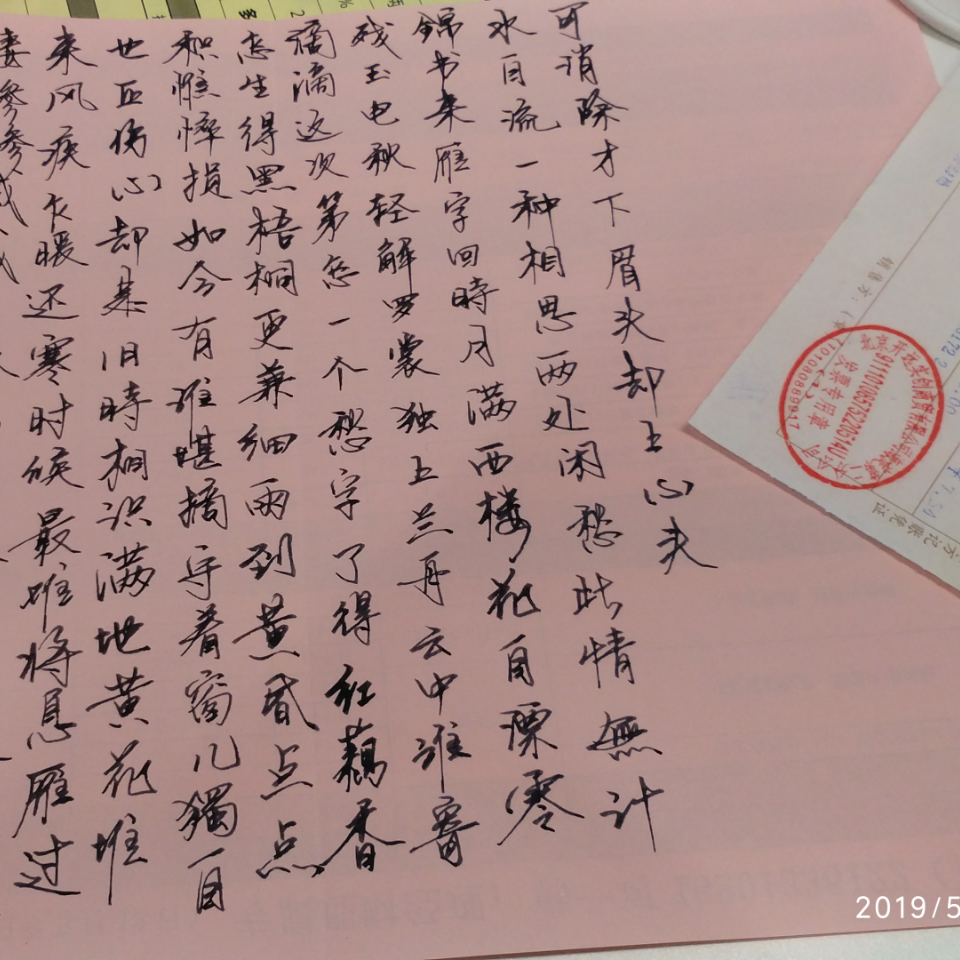 參参
来风疾乍暖还寒时候最难将息雁过
也正伤心却是旧時相识满地黄花堆
积憔悴损如今有谁堪摘守着窗儿獨自
怎生得黑梧桐更兼细雨到黄昏点点
滴滴这次第怎一个愁字了得红藕香
残玉电秋轻解罗裳独上兰舟云中谁寄
锦书来雁字回時月满西楼花自漂零
水自流一种相思两处闲愁此情無计
可消除才下眉头却上心头
发票专用章
2019/5